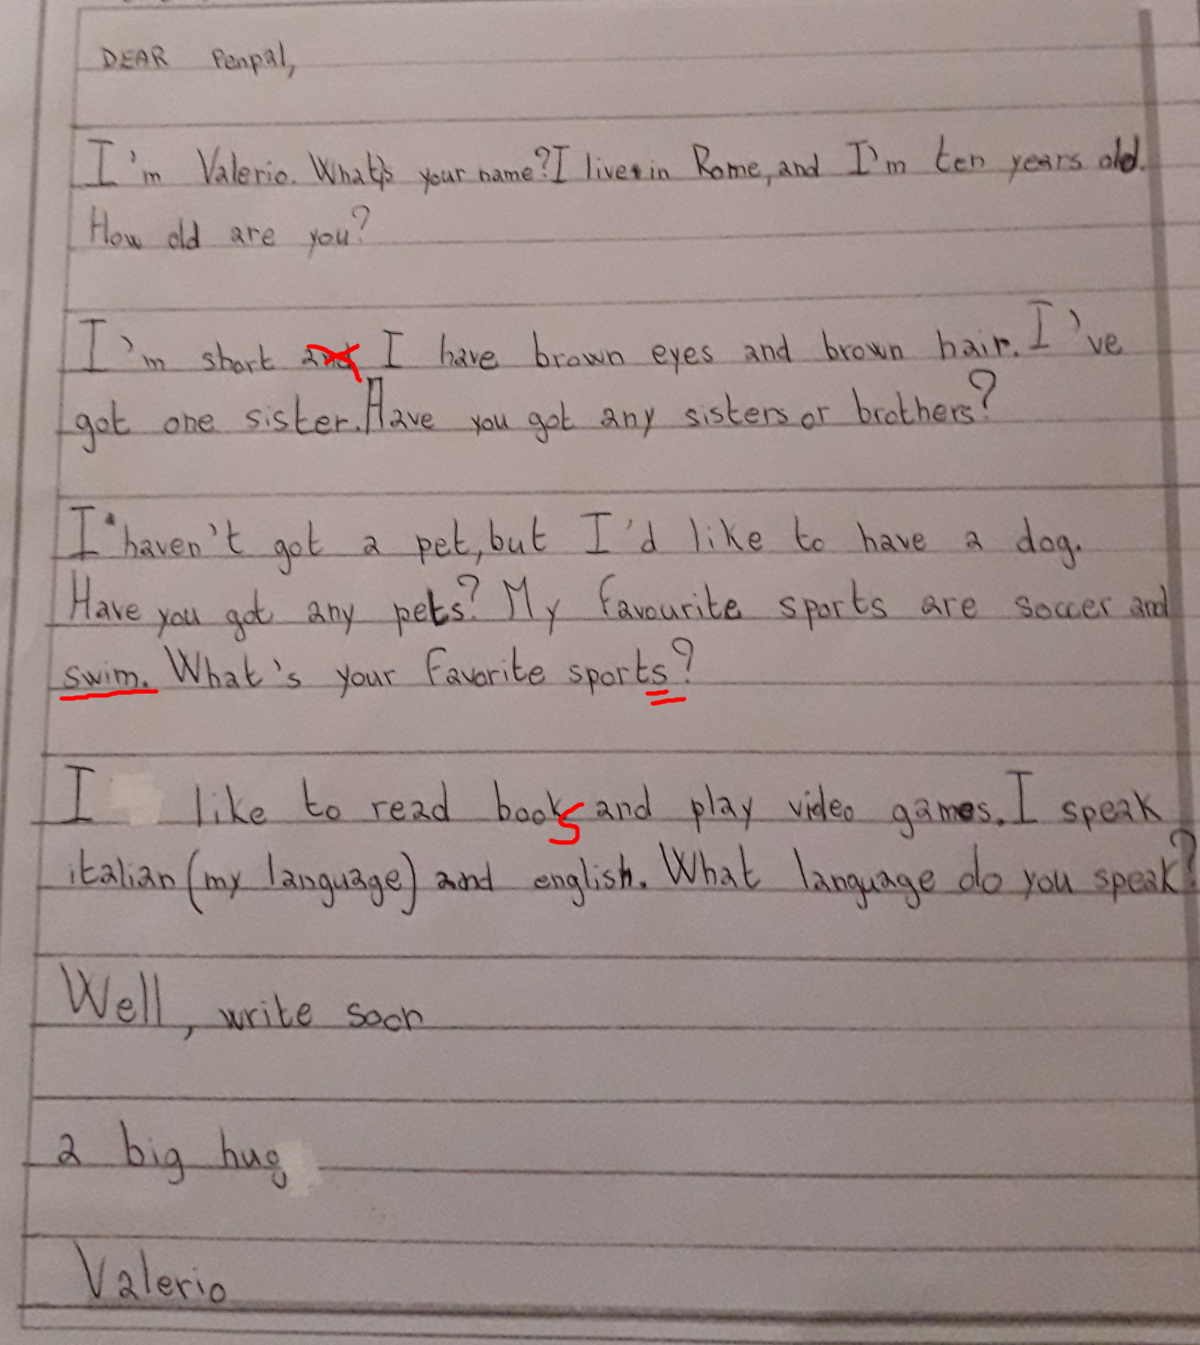 DEAR Penpal,
I'm Valerio. What's your name? I live in Rome, and I'm ten years old.
How old are you?
I'm short and I have brown eyes and brown hair. I've
got one sister. Have you got any sisters or brothers?
I haven't got a pet, but I'd like to have a dog.
Have you got any pets? My favourite sports are soccer and
swim. What's your favorite sports?
I like to read books and play video games. I speak
italian (my language) and english. What language do you speak?
Well, write soon
a big hug
Valerio